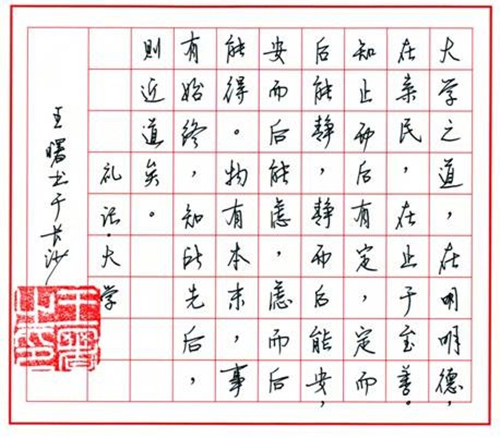 大学之道，在明明德，
在亲民，在止于至善。
知止而后有定，定而
后能静，静而后能安，
安而后能虑，虑而后
能得。物有本末，事
有始终，知所先后，
則近道矣。
礼记·大学
王曙书于长沙
王曙之印